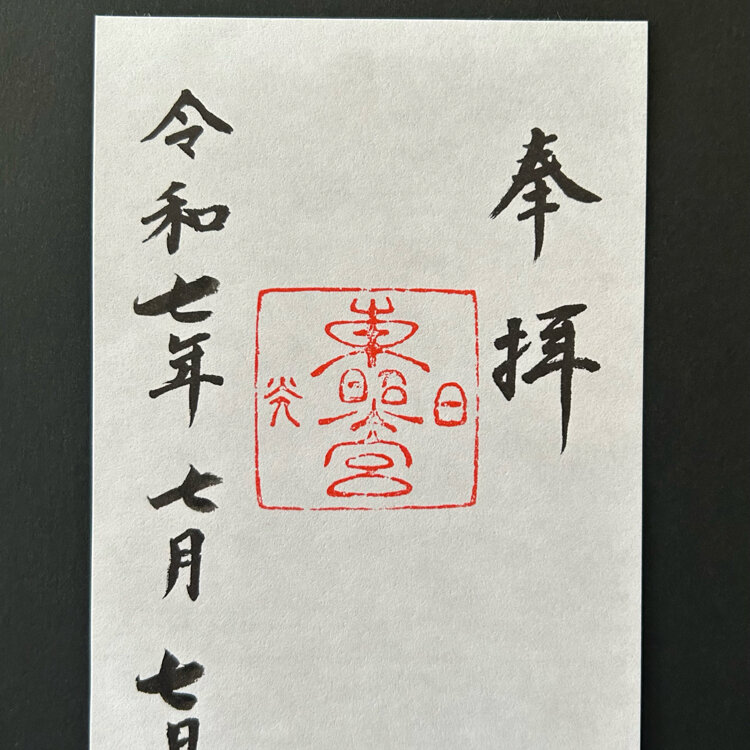 奉拝
日光
東照宮
令和七年 七月 七日